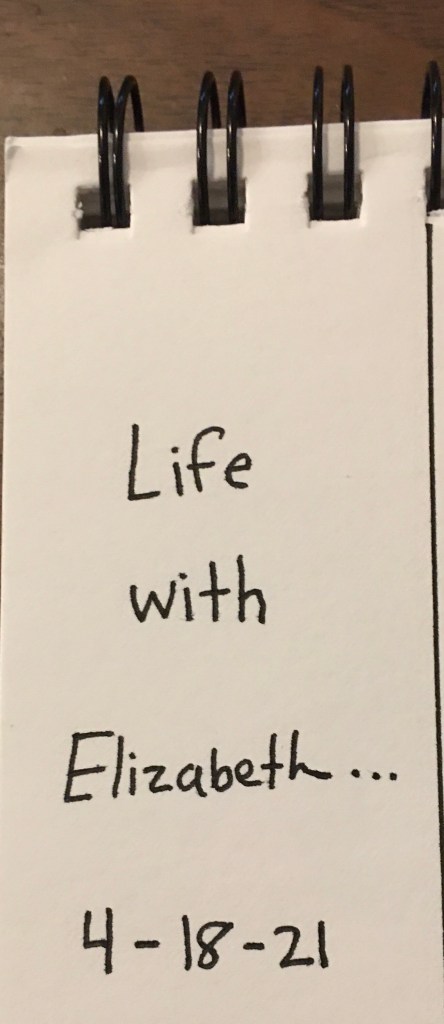 Life
with
Elizabeth...
4-18-21